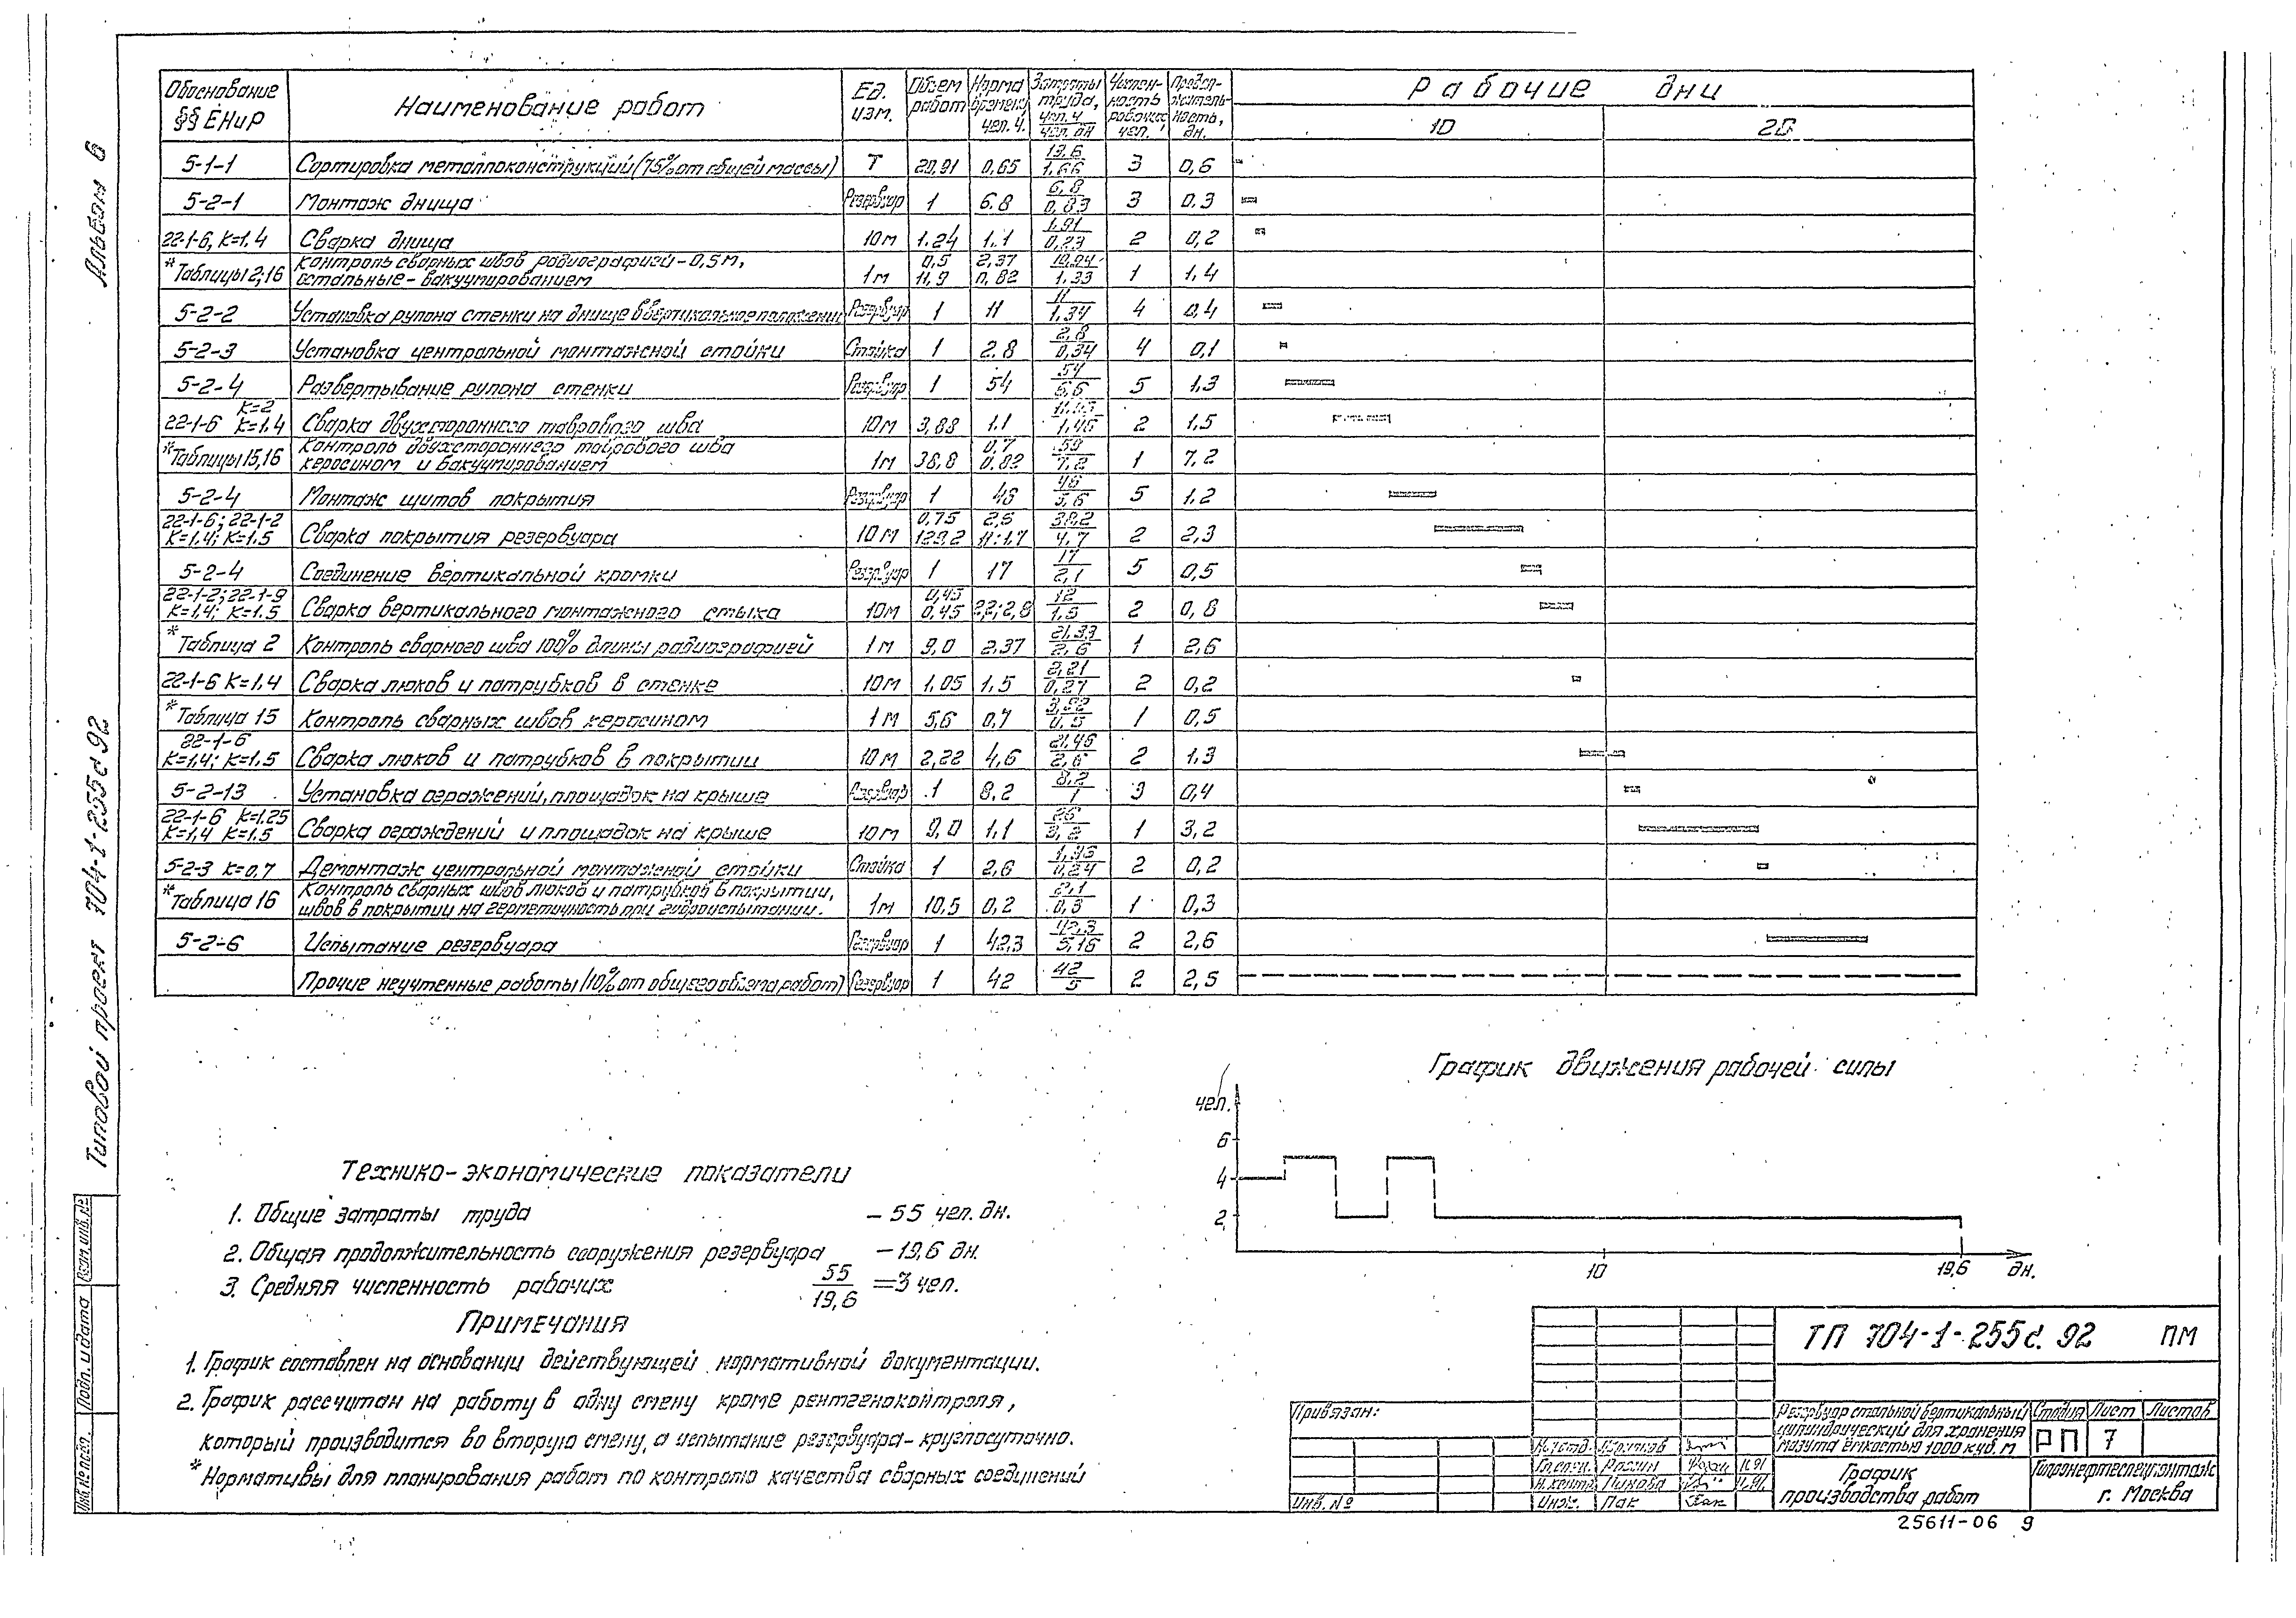 Альбом 6
Типовой проект 704-1-255с.92
Обоснование §§ ЕНиР | Наименование работ | Ед. изм. | Объем работ | Норма времени, чел. ч. | Затраты труда, чел. ч / чел. дн | Числен-ность рабочих чел. | Продол-житель-ность, дн. | Рабочие дни
10 | 20
5-1-1 | Сортировка металлоконструкций (75% от общей массы) | Т | 20,91 | 0,65 | 13,6 / 1,66 | 3 | 0,6
5-2-1 | Монтаж днища | Резервуар | 1 | 6.8 | 6,8 / 0,83 | 3 | 0.3
22-1-6, К=1.4 | Сварка днища | 10м | 1.24 | 1.1 | 1.91 / 0,23 | 2 | 0,2
*Таблицы 2;16 | Контроль сварных швов радиографией-0,5м, остальные-вакуумированием | 1м | 0,5 11,9 | 2,37 0,82 | 10,94 / 1.33 | 1 | 1.4
5-2-2 | Установка рулона стенки на днище в вертикальное положение | Резервуар | 1 | 11 | 11 / 1.34 | 4 | 0,4
5-2-3 | Установка центральной монтажной стойки | Стойка | 1 | 2.8 | 2,8 / 0,34 | 4 | 0,1
5-2-4 | Развертывание рулона стенки | Резервуар | 1 | 54 | 54 / 6,6 | 5 | 1.3
22-1-6 К=2 К=1.4 | Сварка двухстороннего таврового шва | 10м | 3,88 | 1.1 | 2 | 1.5
*Таблицы 15,16 | Контроль двухстороннего таврового шва керосином и вакуумированием | 1м | 38,8 | 0,7 0,82 | 59 / 7,2 | 1 | 7.2
5-2-4 | Монтаж щитов покрытия | Резервуар | 1 | 46 | 46 / 5,6 | 5 | 1.2
22-1-6; 22-1-2 К=1,4; К=1.5 | Сварка покрытия резервуара | 10м | 0,75 129,2 | 38,2 / 4,7 | 2 | 2,3
5-2-4 | Соединение вертикальной кромки | Резервуар | 1 | 17 | 17 / 2,1 | 5 | 0,5
22-1-2; 22-1-9 К=1,4; К=1.5 | Сварка вертикального монтажного стыка | 10м | 0,45 0,45 | 2,2; 2,8 | 12 / 1,5 | 2 | 0,8
*Таблица 2 | Контроль сварного шва 100% длины радиографией | 1м | 9,0 | 2.37 | 21.33 / 2,6 | 1 | 2.6
22-1-6 К=1.4 | Сварка люков и патрубков в стенке | 10м | 1,05 | 1,5 | 2,21 / 0,27 | 2 | 0,2
*Таблица 15 | Контроль сварных швов керосином | 1м | 5,6 | 0,7 | 3,92 / 0,5 | 1 | 0,5
22-1-6 К=1,4; К=1.5 | Сварка люков и патрубков в покрытии | 10м | 2,22 | 4,6 | 21,46 / 2,6 | 2 | 1.3
5-2-13 | Установка огражений, площадок на крыше | Резервуар | 1 | 8.2 | 8,2 / 1 | 3 | 0,4
22-1-6 К=1.25 К=1,4 К=1.5 | Сварка ограждений и площадок на крыше | 10м | 9,0 | 1.1 | 26 / 3,2 | 1 | 3,2
5-2-3 К=0,7 | Демонтаж центральной монтажной стойки | Стойка | 1 | 2,6 | 2 | 0,2
*Таблица 16 | Контроль сварных швов люков и патрубков в покрытии, швов в покрытии на герметичность при гидроиспытании. | 1м | 10,5 | 0,2 | 2,1 / 0,3 | 1 | 0,3
5-2-6 | Испытание резервуара | Резервуар | 1 | 42,3 | 42,3 / 5,16 | 2 | 2,6
Прочие неучтенные работы (10% от общего объема работ) | Резервуар | 1 | 42 | 42 / 5 | 2 | 2,5
График движения рабочей силы
чел.
6
4
2
10
19,6
дн.
Технико-экономические показатели
1. Общие затраты труда - 55 чел. дн.
2. Общая продолжительность сооружения резервуара - 19,6 дн.
3. Средняя численность рабочих 55 / 19,6 = 3 чел.
Примечания
1. График составлен на основании действующей нормативной документации.
2. График рассчитан на работу в одну смену кроме рентгеноконтроля,
который производится во вторую смену, а испытание резервуара-круглосуточно.
* Нормативы для планирования работ по контролю качества сварных соединений
Взам. инв. №
Подп. и дата
Инв. № подл.
Привязан:
Инв. №
Инж. Пак
ТП 704-1-255с. 92 ПМ
Резервуар стальной вертикальный
цилиндрический для хранения
мазута емкостью 1000 куб. м
Стадия | Лист | Листов
РП | 7
График
производства работ
Гипронефтеспецмонтаж
г. Москва
25611-06 9